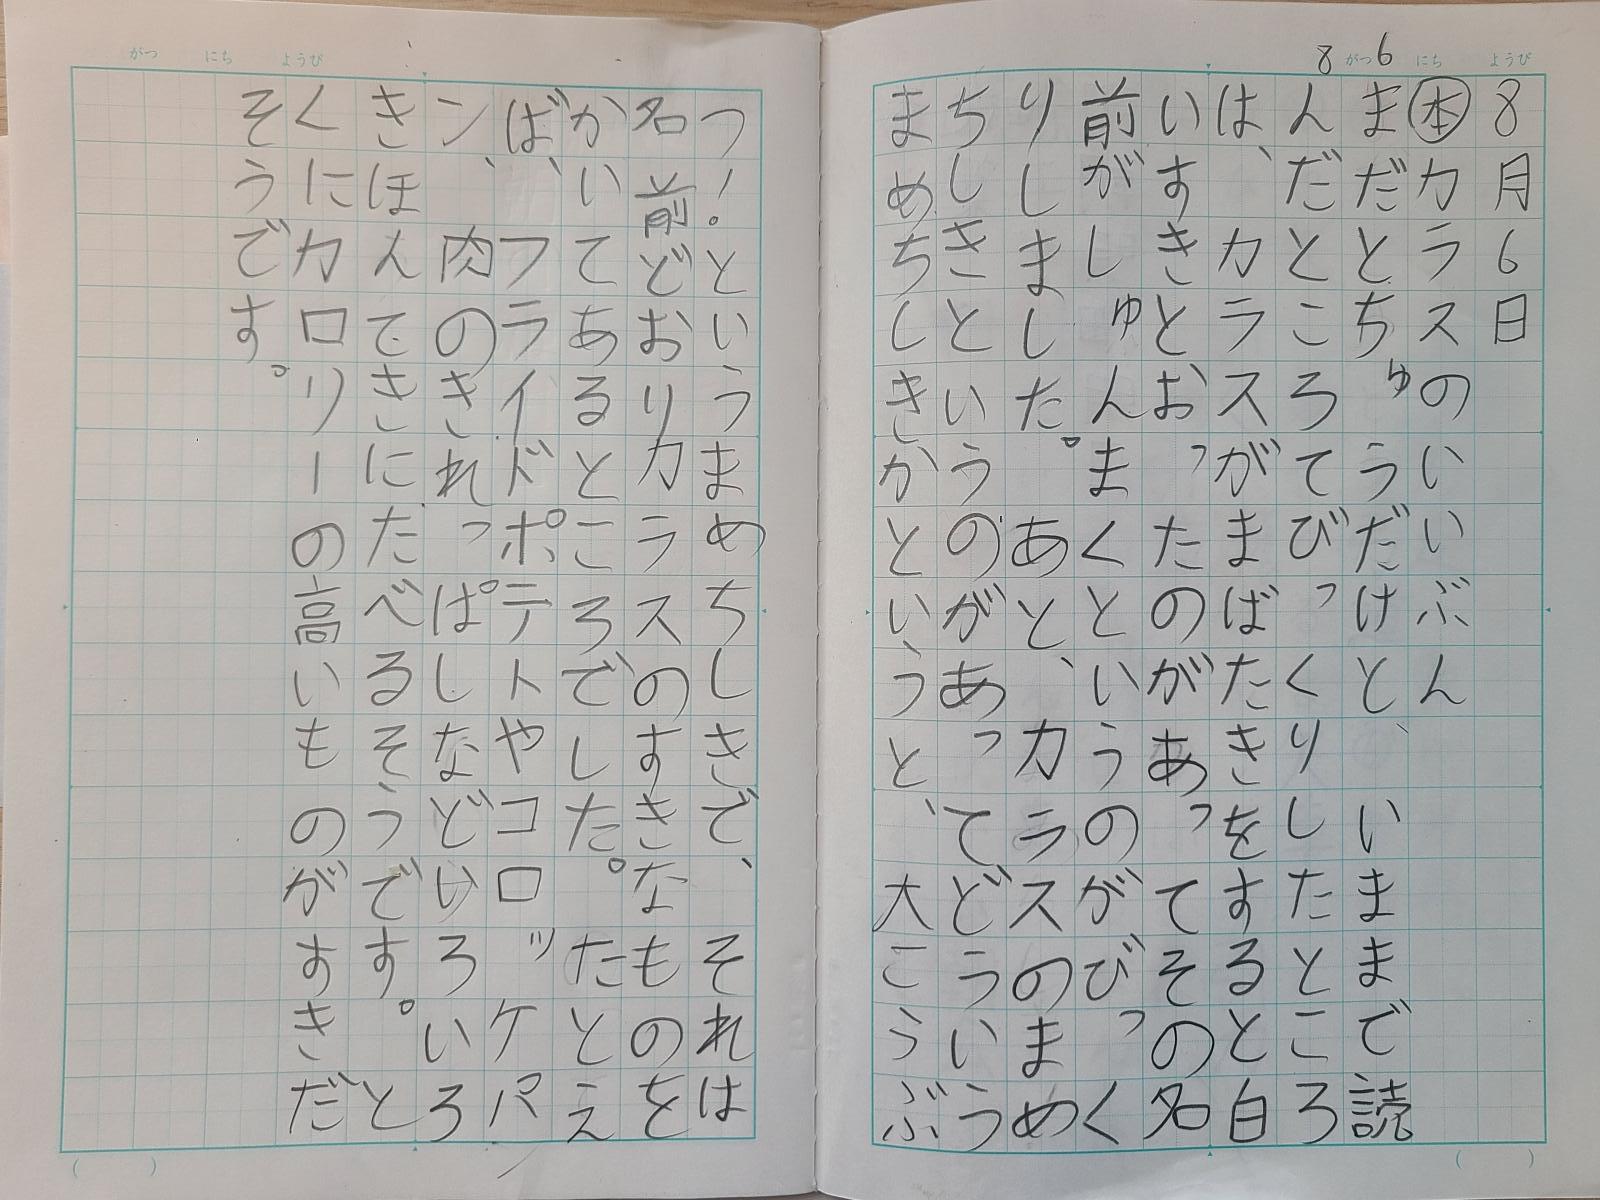 8 がつ 6 にち ようび
8月6日
㊍カラスのいいぶん、
まだとちゅうだけといままで読
んだところてびっくりしたところ
は、カラスがまばたきをすると白
いすきとおったのがあってその名
前がしゅんまくというのがびっく
りしました。あと、カラスのまめ
ちしきというのがあってどういう
まめちしきかというと、大こうぶ
がつ にち ようび
つ!というまめちしきで、それは
名前どおりカラスのすきなものを
かいてあるところでした。たとえ
ば、フライドポテトやコロッケパ
ン、肉のきれっぱしなどいろいろ
きほんてきにたべるそうです。と
くにカロリーの高いものがすきだ
そうです。